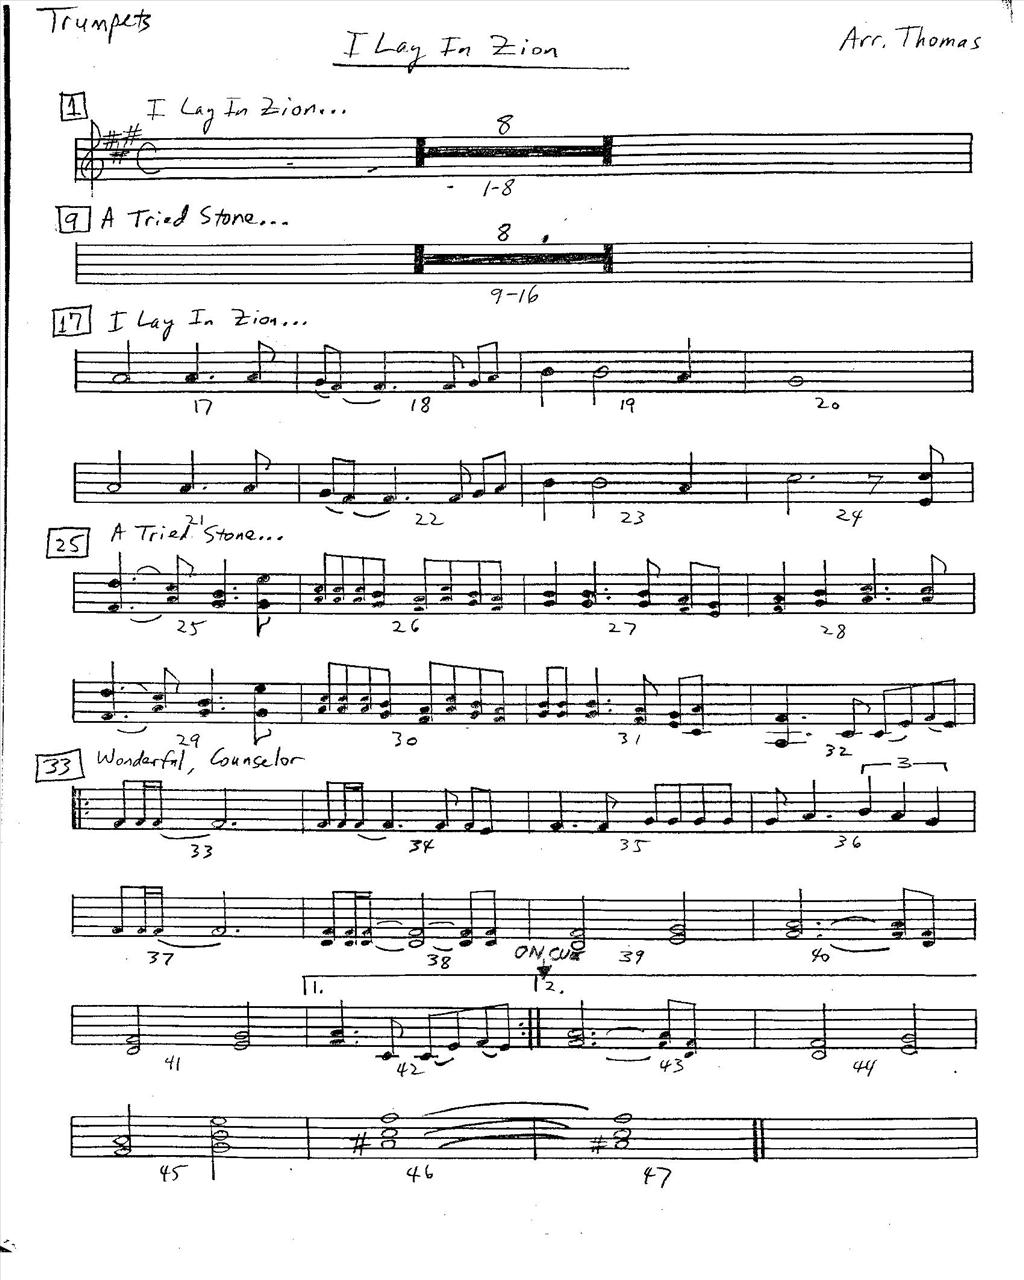 Trumpets
I Lay In Zion
Arr. Thomas
1 I Lay In Zion...
8
1-8
9 A Tried Stone...
8
9-16
17 I Lay In Zion...
17 18 19 20
21 22 23 24
25 A Tried Stone...
25 26 27 28
29 30 31 32
33 Wonderful, Counselor
3
33 34 35 36
37 38 39 40
ON CUE
1. 2.
41 42 43 44
45 46 47